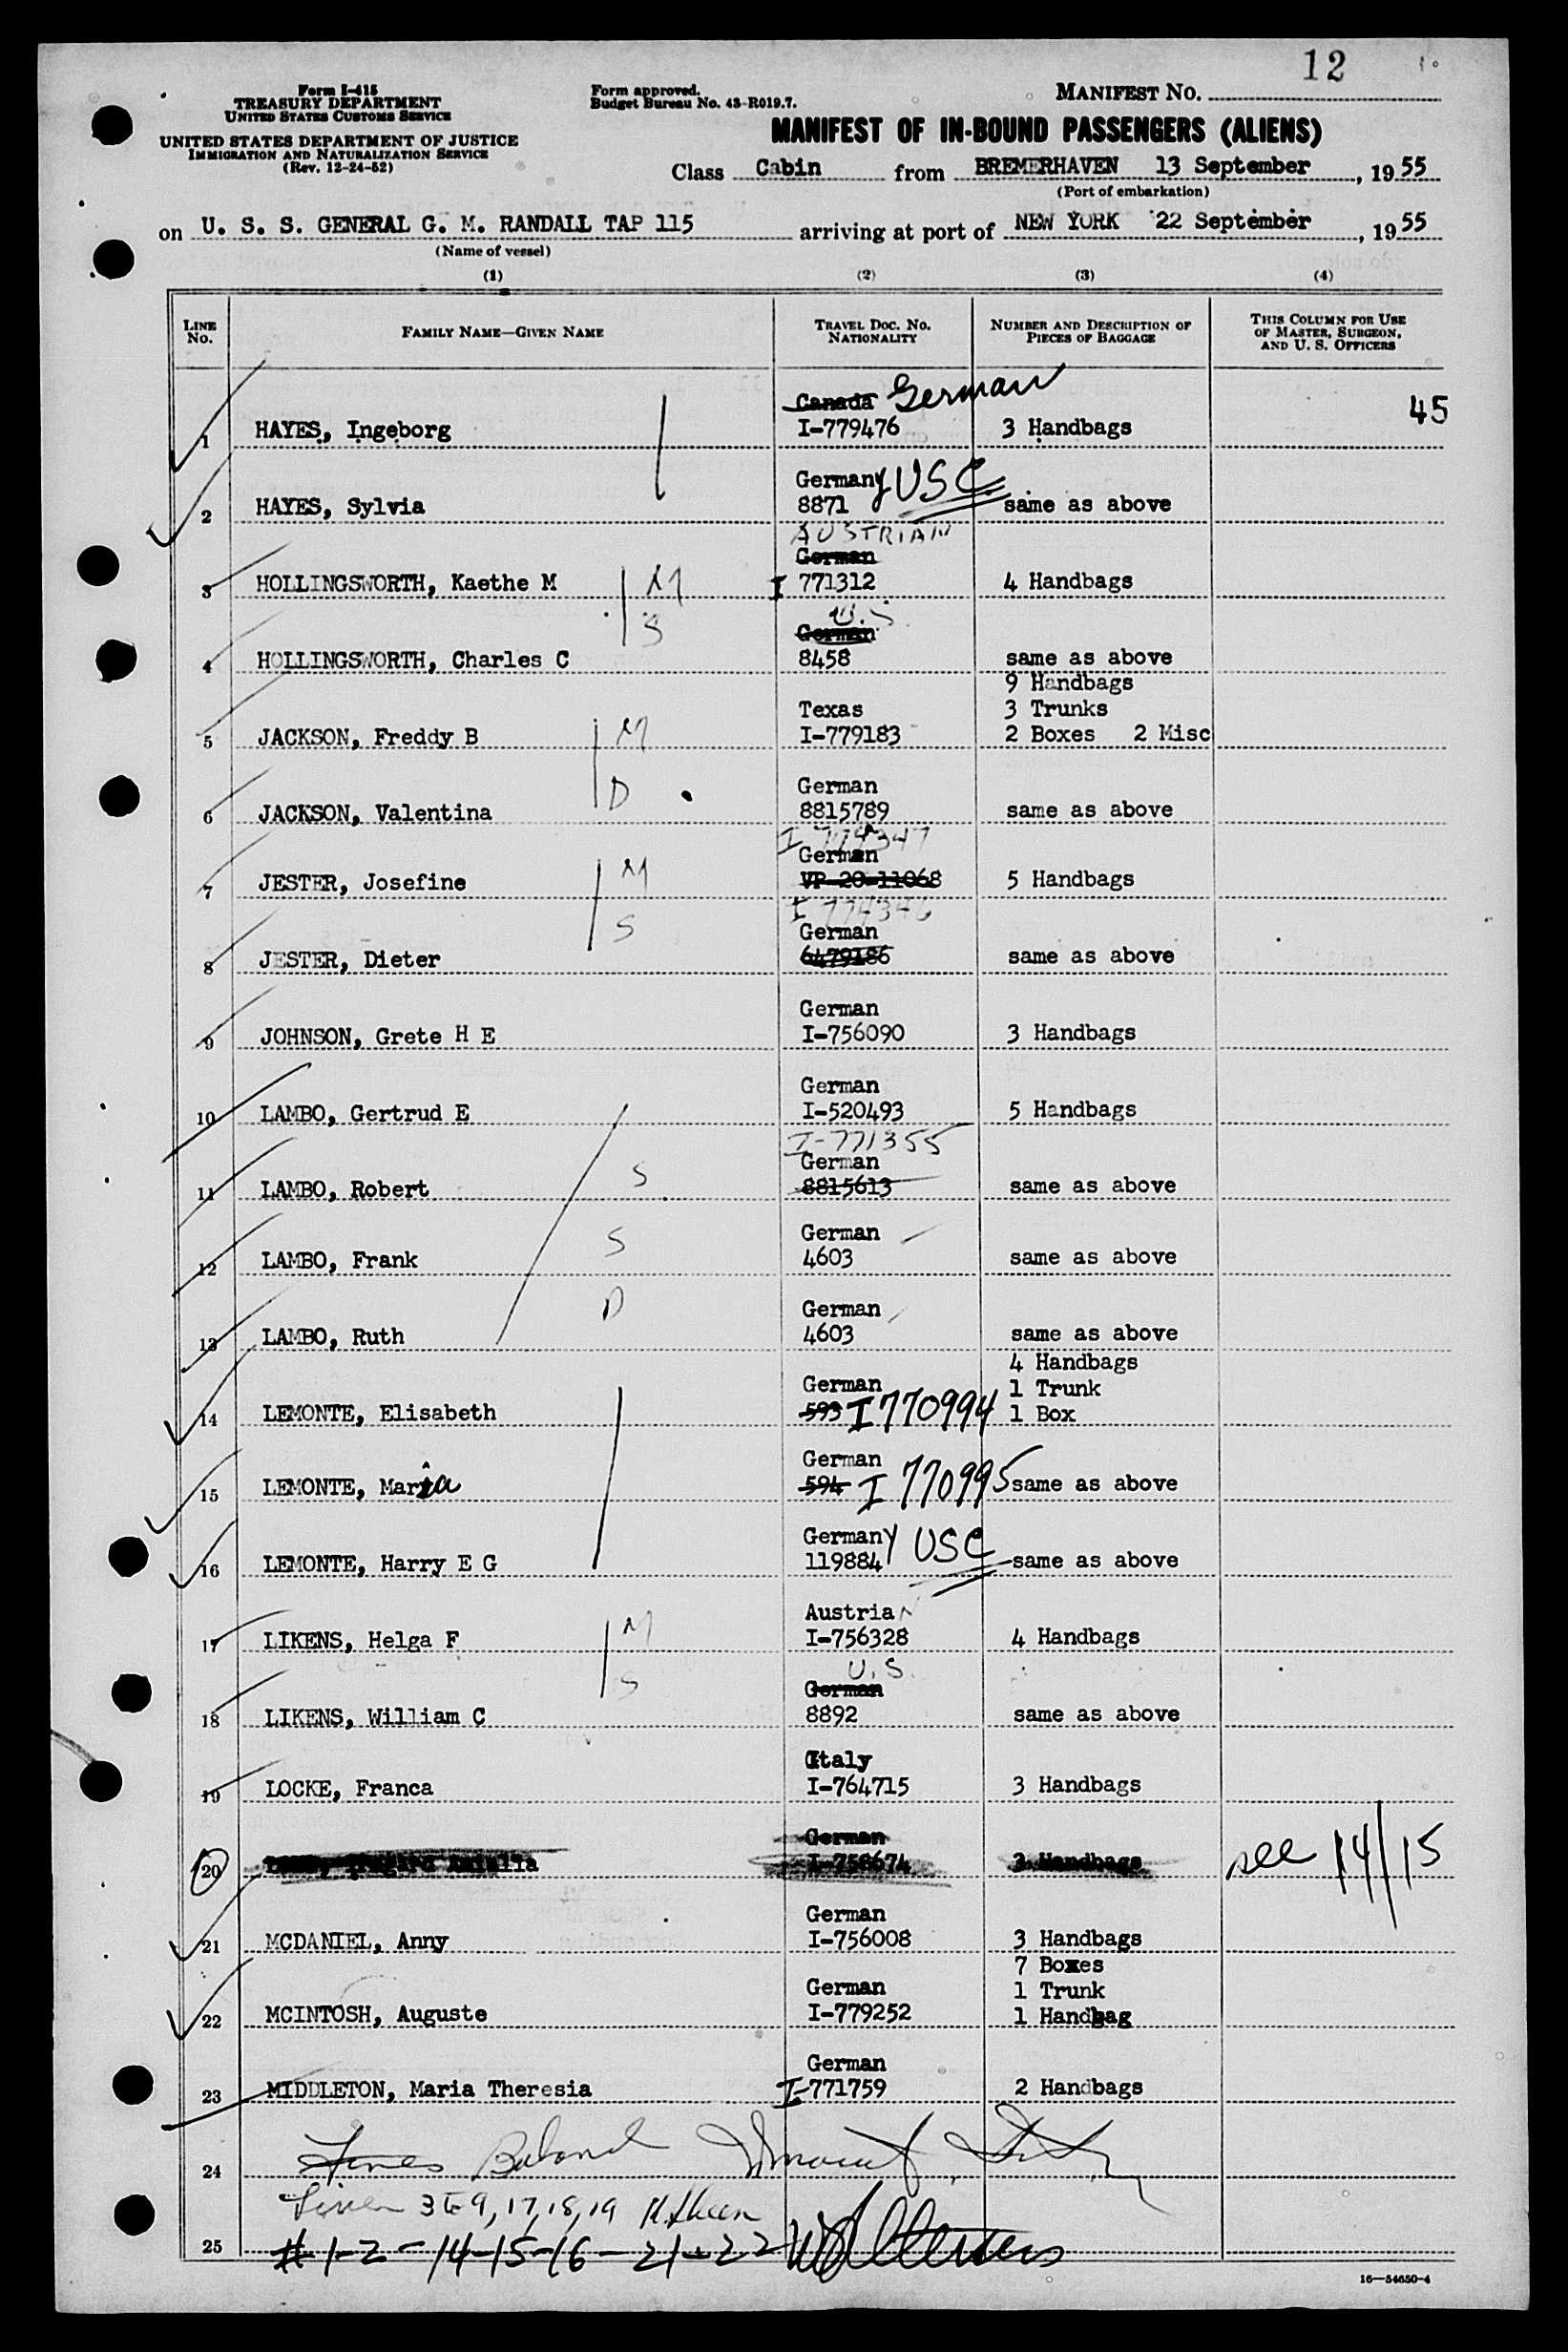 12
Form I-415
TREASURY DEPARTMENT
UNITED STATES CUSTOMS SERVICE
UNITED STATES DEPARTMENT OF JUSTICE
IMMIGRATION AND NATURALIZATION SERVICE
(Rev. 12-24-52)
Form approved.
Budget Bureau No. 43-R019.7.
MANIFEST NO.
MANIFEST OF IN-BOUND PASSENGERS (ALIENS)
Class Cabin from BREMERHAVEN 13 September, 1955
(Port of embarkation)
on U. S. S. GENERAL G. M. RANDALL TAP 115 arriving at port of NEW YORK 22 September, 1955
(Name of vessel)
(1) (2) (3) (4)
LINE NO. FAMILY NAME—GIVEN NAME TRAVEL DOC. NO. NATIONALITY NUMBER AND DESCRIPTION OF PIECES OF BAGGAGE THIS COLUMN FOR USE OF MASTER, SURGEON, AND U. S. OFFICERS
Canada German
1 HAYES, Ingeborg I-779476 3 Handbags 45
Germany USC
2 HAYES, Sylvia 8871 same as above
AUSTRIAN
German
3 HOLLINGSWORTH, Kaethe M M I 771312 4 Handbags
U.S.
German
4 HOLLINGSWORTH, Charles C S 8458 same as above
9 Handbags
Texas 3 Trunks
5 JACKSON, Freddy B M I-779183 2 Boxes 2 Misc
German
6 JACKSON, Valentina D 8815789 same as above
I 774347
German
7 JESTER, Josefine M VP-20-11068 5 Handbags
I 774346
German
8 JESTER, Dieter S 6479186 same as above
German
9 JOHNSON, Grete H E I-756090 3 Handbags
German
10 LAMBO, Gertrud E I-520493 5 Handbags
I-771355
German
11 LAMBO, Robert S 8815613 same as above
German
12 LAMBO, Frank S 4603 same as above
German
13 LAMBO, Ruth D 4603 same as above
4 Handbags
German 1 Trunk
14 LEMONTE, Elisabeth 593 I 770994 1 Box
German
15 LEMONTE, Maria 594 I 770995 same as above
Germany USC
16 LEMONTE, Harry E G 119884 same as above
Austrian
17 LIKENS, Helga F M I-756328 4 Handbags
U.S.
German
18 LIKENS, William C S 8892 same as above
Italy
19 LOCKE, Franca I-764715 3 Handbags
German
20 I-758674 3 Handbags see 14/15
German
21 MCDANIEL, Anny I-756008 3 Handbags
7 Boxes
German 1 Trunk
22 MCINTOSH, Auguste I-779252 1 Handbag
German
23 MIDDLETON, Maria Theresia I-771759 2 Handbags
24
3 to 9, 17, 18, 19
25 # 1-2-14-15-16-21-22
16—54650-4